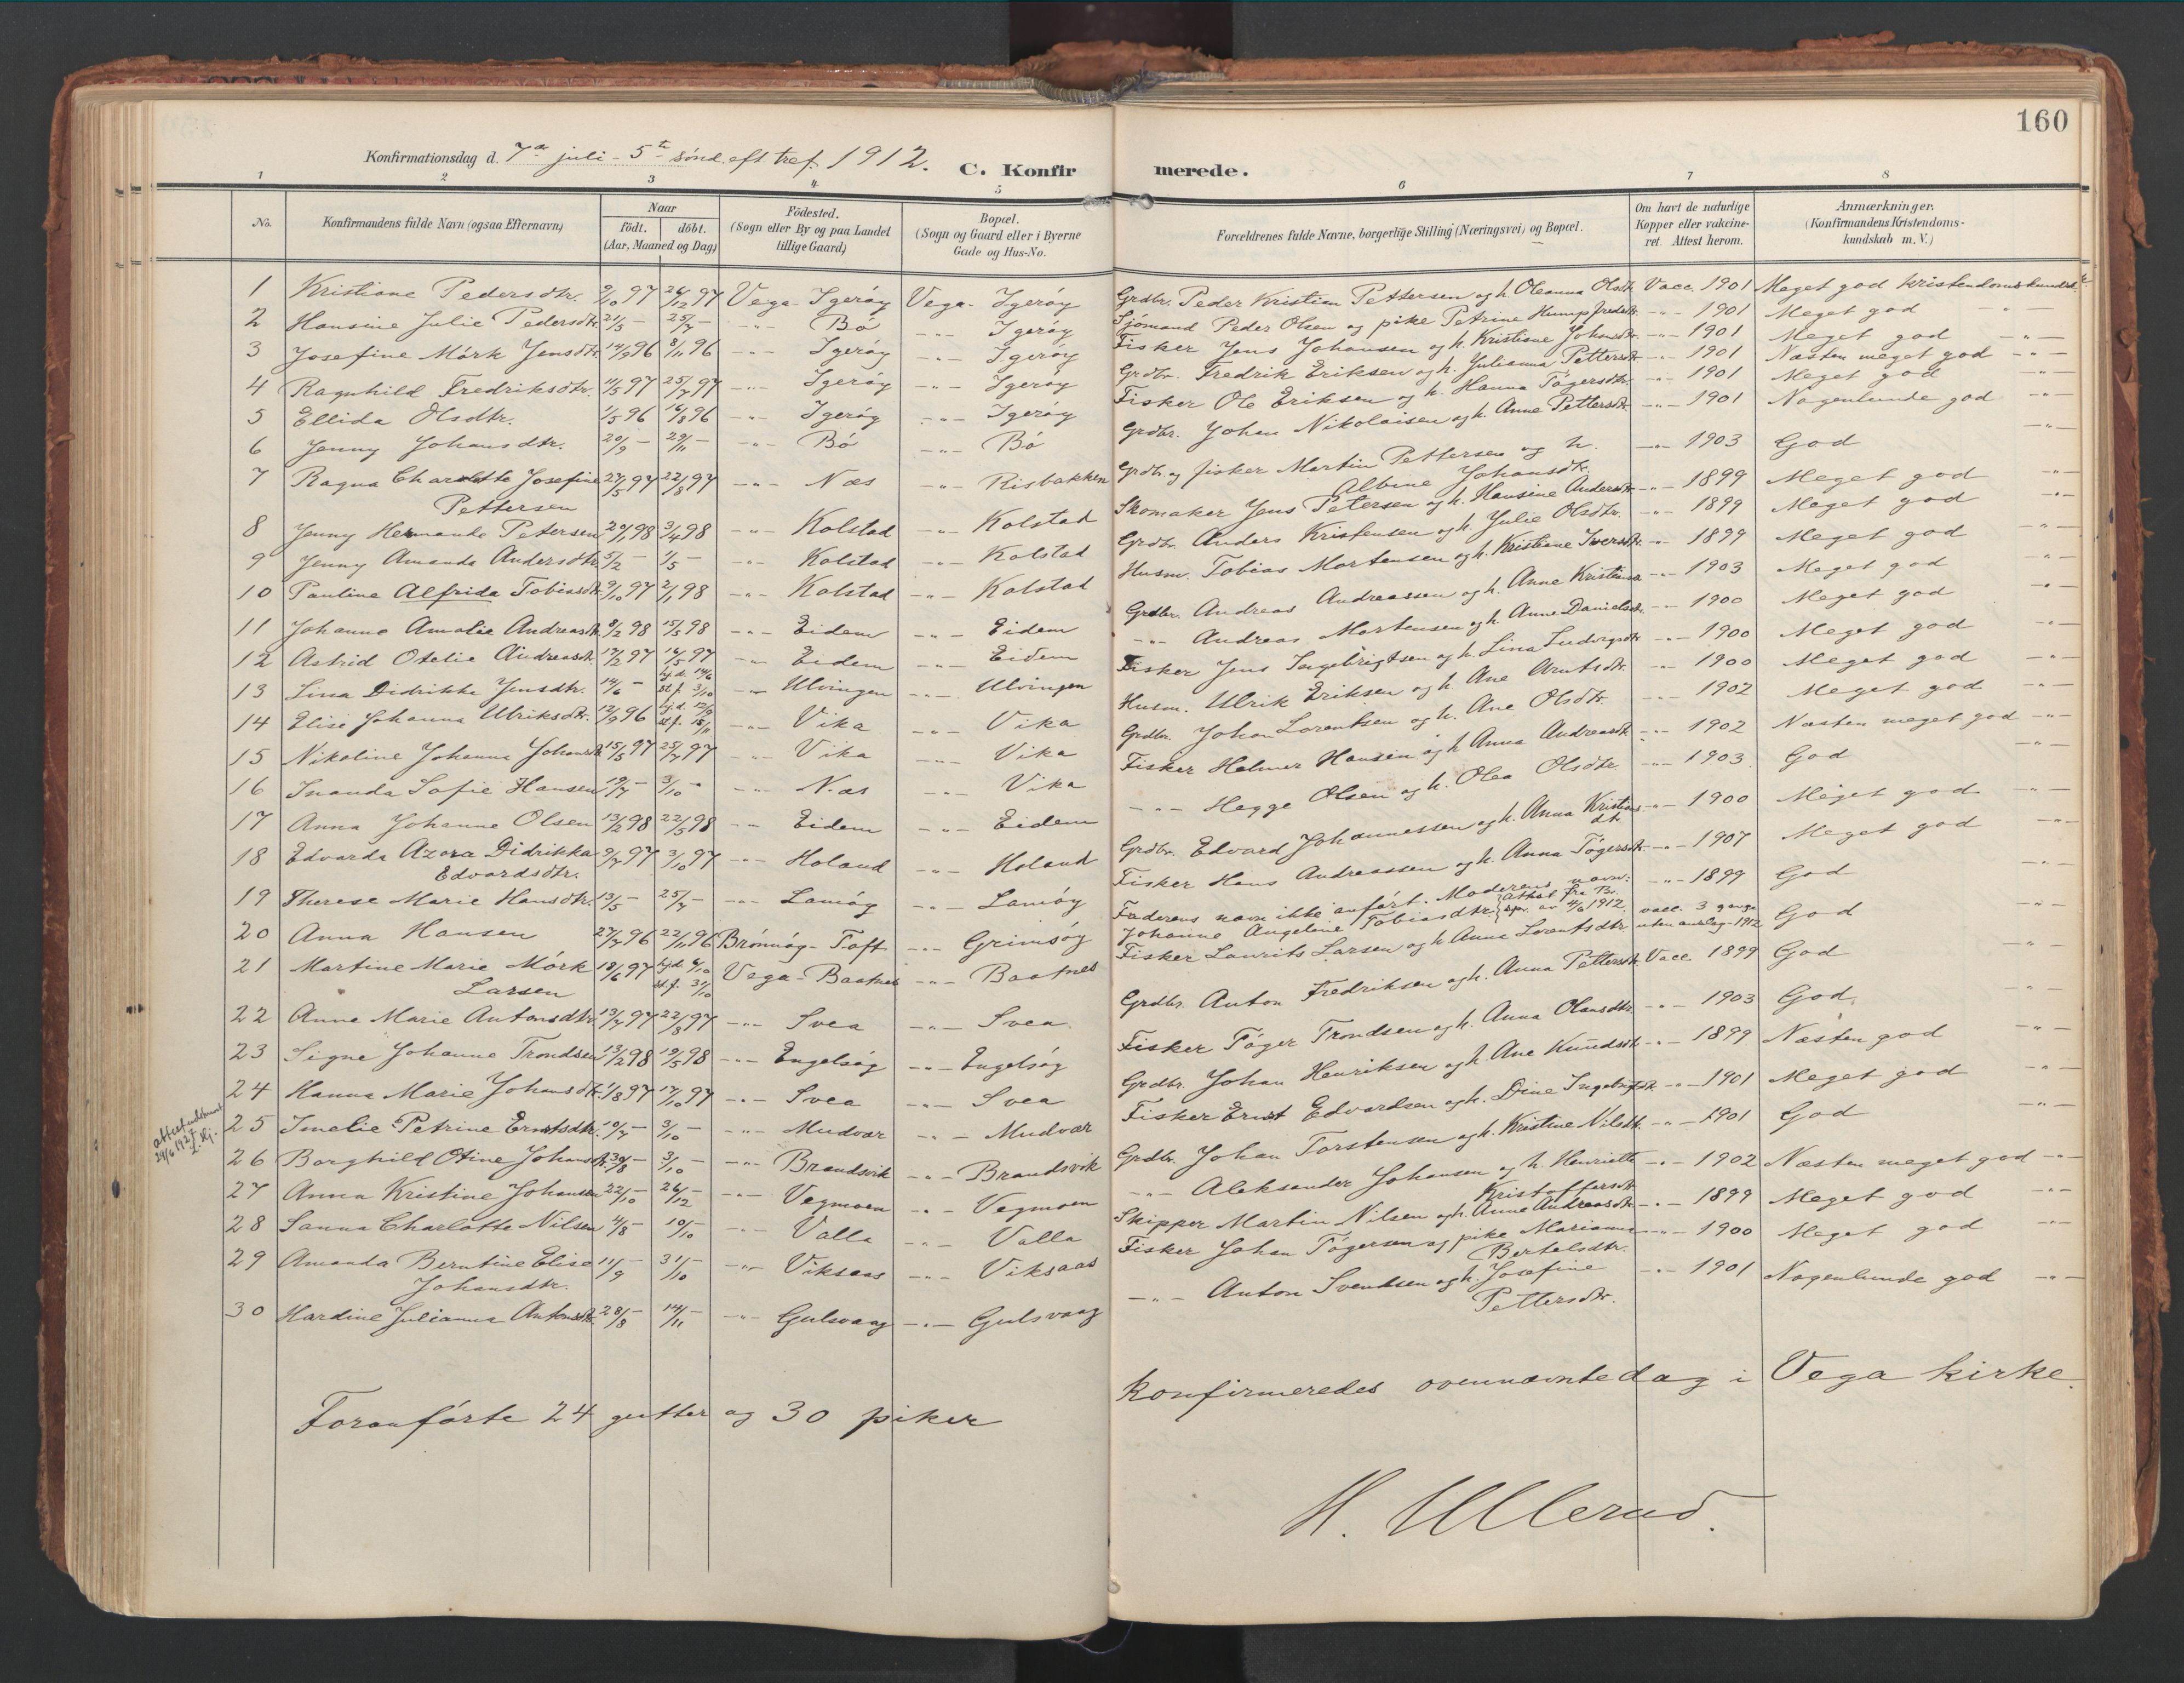 160
Konfirmationsdag d. 7de juli - 5te sönd. eft. tref. 1912. C. Konfirmerede.
1 2 3 4 5 6 7 8
No. Konfirmandens fulde Navn (ogsaa Efternavn) Naar födt. döbt. (Aar, Maaned og Dag) Födested. (Sogn eller By og paa Landet tillige Gaard) Bopæl. (Sogn og Gaard eller i Byerne Gade og Hus-No. Forældrenes fulde Navne, borgerlige Stilling (Næringsvei) og Bopæl. Om havt de naturlige Kopper eller vakcineret. Attest herom. Anmærkninger. (Konfirmandens Kristendomskundskab m. V.)
1 Kristiane Pedersdtr. 9/10 97 26/12 97 Vega - Igeröy Vega - Igeröy Grdbr. Peder Kristian Pettersen og h. Oleanna Olsdtr. Vacc. 1901 Meget god kristendomskundsk.
2 Hansine Julie Pedersdtr. 21/5 - 25/7 - -"- Bö -"- Igeröy Sjömand Peder Olsen og pike Petrine -"- 1901 Meget god -"-
3 Josefine Mörk Jensdtr. 14/9 96 8/11 96 -"- Igeröy -"- Igeröy Fisker Jens Johansen og h. Kristiane Johnsdtr. -"- 1901 Meget god -"-
4 Ragnhild Fredriksdtr. 11/5 97 25/7 97 -"- Igeröy -"- Igeröy Grdbr. Fredrik Eriksen og h. Julianna Pettersdtr. -"- 1901 Næsten meget god -"-
5 Ellida Olsdtr. 1/5 96 16/8 96 -"- Igeröy -"- Igeröy Fisker Ole Eriksen og h. Hanna Tögersdtr. -"- 1901 Meget god -"-
6 Jenny Johansdtr. 20/9 - 29/11 - -"- Bö -"- Bö Grdbr. Johan Nikolaisen og h. Anne Pettersdtr. -"- 1901 Nogenlunde god -"-
7 Ragna Charlotte Josefine Pettersen 27/5 97 22/8 97 -"- Næs -"- Risbakken Grdbr. og fisker Martin Pettersen og h. Albine Johansdtr. -"- 1903 God -"-
8 Jenny Hermande Petersen 20/1 98 3/4 98 -"- Kolstad -"- Kolstad Skomaker Jens Petersen og h. Hansine Andersdtr. -"- 1899 Meget god -"-
9 Jenny Amanda Andersdtr. 5/2 - 1/5 - -"- Kolstad -"- Kolstad Grdbr. Anders Kristensen og h. Julie Olsdtr. -"- 1899 Meget god -"-
10 Pauline Alfrida Tobiasdtr. 9/10 97 2/1 98 -"- Kolstad -"- Kolstad Husm. Tobias Mortensen og h. Kristiane Iversdtr. -"- 1899 Meget god -"-
11 Johanne Amalie Andreasdtr. 8/2 98 15/5 98 -"- Eidem -"- Eidem Grdbr. Andreas Andreassen og h. Anne Kristiana -"- 1903 Meget god -"-
12 Astrid Otelie Andreasdtr. 17/2 97 16/5 97 -"- Eidem -"- Eidem -"- Andreas Mortensen og h. Anne Danielsdtr. -"- 1900 Meget god -"-
13 Lina Didrikke Jensdtr. 14/6 - hj.d. 14/6 st.f. 3/10 -"- Ulvingen -"- Ulvingen Fisker Jens Ingebrigtsen og h. Lina Ludvigsdtr. -"- 1900 Meget god -"-
14 Elise Johanna Ulriksdtr. 12/9 96 hj.d. 12/9 st.f. 15/11 -"- Vika -"- Vika Husm. Ulrik Eriksen og h. Ane Arntsdtr. -"- 1900 Meget god -"-
15 Nikoline Johanna Johansdtr. 15/5 97 25/7 97 -"- Vika -"- Vika Grdbr. Johan Lorentsen og h. Ane Olsdtr. -"- 1902 Meget god -"-
16 Inanda Sofie Hansen 19/7 - 3/10 - -"- Næs -"- Vika Fisker Helmer Hansen og h. Anna Andreasdtr. -"- 1902 Næsten meget god -"-
17 Anna Johanne Olsen 13/2 98 22/5 98 -"- Eidem -"- Eidem -"- Hegge Olsen og h. Olea Olsdtr. -"- 1903 God -"-
18 Edvarda Azora Didrikka Edvardsdtr. 9/7 97 3/10 97 -"- Holand -"- Holand Grdbr. Edvard Johannessen og h. Anna Kristiansdtr. -"- 1900 Meget god -"-
19 Therese Marie Hansdtr. 13/5 - 25/7 - -"- Lamöy -"- Lamöy Fisker Hans Andreassen og h. Anna Tögersdtr. -"- 1907 Meget god -"-
20 Anna Hansen 27/7 96 22/11 96 Brönnöy - Toft -"- Grimsöy Faderens navn ikke anfört. Moderens navn: Johanne Angeline Tobiasdtr. attest fra Br. spr. av 4/6 1912 -"- 1899 God -"-
21 Martine Marie Mörk Larsen 18/6 97 hj.d. 6/10 st.f. 31/10 Vega - Baatnes -"- Baatnes Fisker Laurits Larsen og h. Anna Lorentsdtr. vacc. 3 gange uten anslag 1912 God
22 Anne Marie Antonsdtr. 13/7 97 22/8 97 -"- Svea -"- Svea Grdbr. Anton Fredriksen og h. Anna Pettersdtr. Vacc 1899 God -"-
23 Signe Johanne Trondsen 13/2 98 19/5 98 -"- Engelsöy -"- Engelsöy Fisker Töger Trondsen og h. Anna Olausdtr. -"- 1903 God -"-
24 Hanna Marie Johansdtr. 1/8 97 17/10 97 -"- Svea -"- Svea Grdbr. Johan Henriksen og h. Ane Knudsdtr. -"- 1899 Næsten god -"-
25 Imelie Petrine Ernstsdtr. 10/7 - 3/10 -"- Mudvær -"- Mudvær Fisker Ernst Edvardsen og h. Dine Ingebrigtsdtr. -"- 1901 Meget god -"-
29/6 1927
26 Borghild Otine Johansdtr. 30/8 - 3/10 - -"- Brandsvik -"- Brandsvik Grdbr. Johan Torstensen og h. Kristine Nilsdtr. -"- 1901 God -"-
27 Anna Kristine Johansen 22/10 - 26/12 - -"- Vegmoen -"- Vegmoen -"- Aleksander Johansen og h. Henriette Kristoffersdtr. -"- 1902 Næsten meget god -"-
28 Sanna Charlotte Nilsen 4/8 - 10/10 - -"- Valla -"- Valla Skipper Martin Nilsen og h. Anne Andreasdtr. -"- 1899 Meget god -"-
29 Amanda Berntine Elise Johansdtr. 11/9 - 31/10 - -"- Viksaas -"- Viksaas Fisker Johan Tögersen og pike Marianna Bertelsdtr. -"- 1900 Meget god -"-
30 Hardine Julianna Antonsdtr. 28/8 - 14/11 - -"- Gulsvaag -"- Gulsvaag -"- Anton Svendsen og h. Josefine Pettersdtr. -"- 1901 Nogenlunde god -"-
Foranförte 24 gutter og 30 piker konfirmeredes ovennævnte dag i Vega kirke.
H. Ullerud.